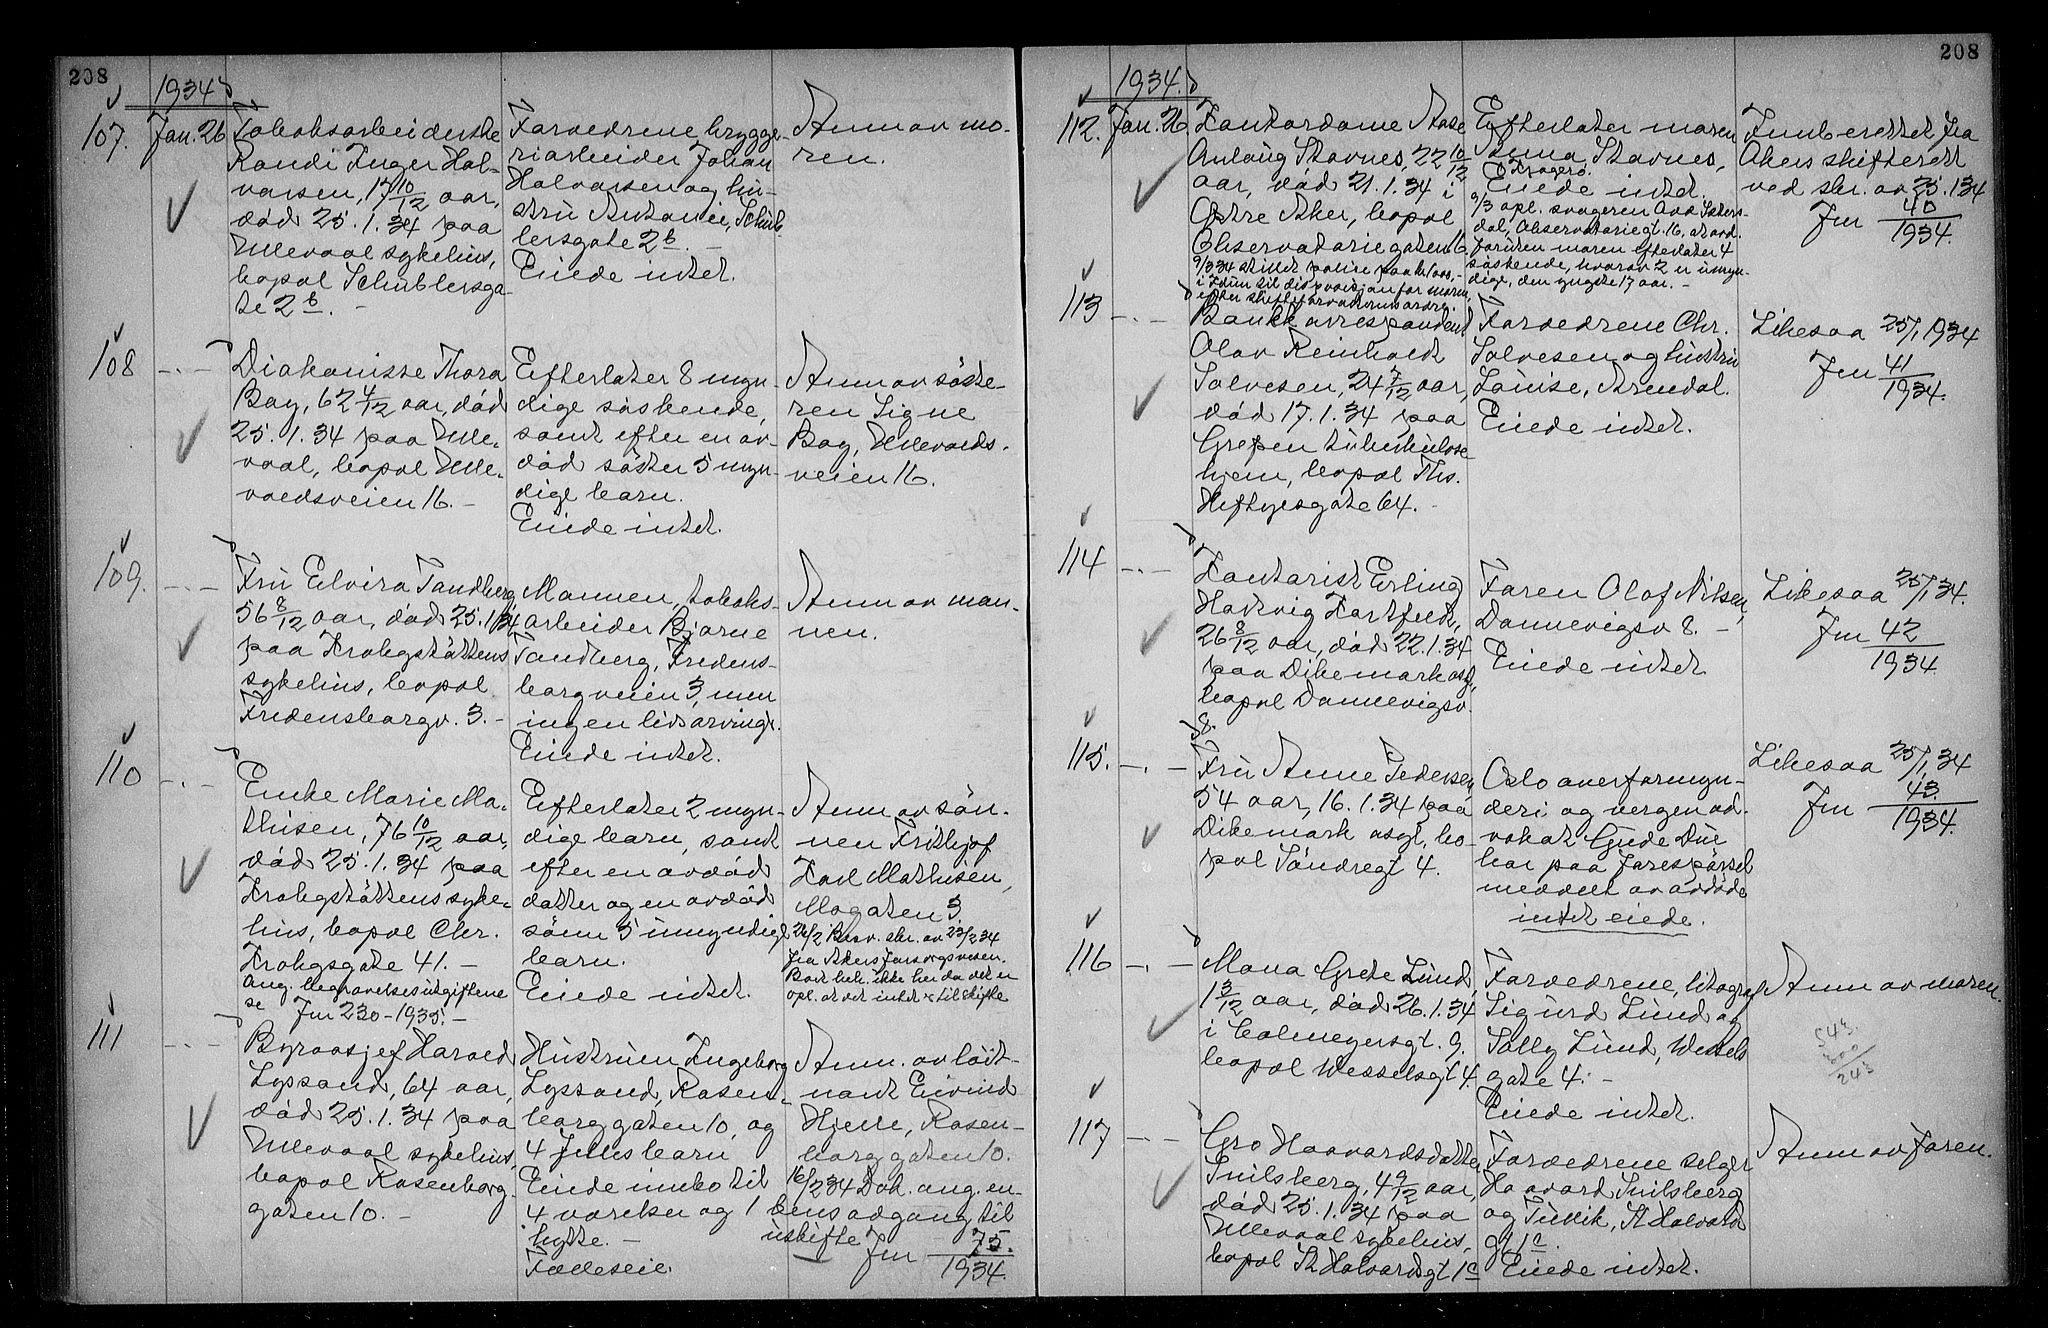 208
1934
107. Jan. 26
Tobaksarbeiderske
Randi Inger Hal-
varsen, 17 10/12 aar,
död 25.1.34 paa
Ullevaal sykehus,
bopæl Schüblersga-
te 2b. -
Forældrene brygge-
riarbeider Johan
Halvarsen og hu-
stru Antonie, Schüb-
lersgate 2b. -
Eiede intet.
Anm av mo-
ren.
108 -.-
Diakonisse Thora
Bay, 62 4/12 aar, död
25.1.34 paa Ulle-
vaal, bopæl Ulle-
voldsveien 16. -
Efterlater 8 myn-
dige söskende,
samt efter en av-
död söster 5 myn-
dige barn.
Eiede intet.
Anm av söste-
ren Signe
Bay, Ullevolds-
veien 16.
109. -.-
Fru Elvira Tandberg
56 8/12 aar, död 25.1.34
paa Krohgstöttens
sykehus, bopæl
Fredensborgv. 3. -
Mannen, tobaks-
arbeider Bjarne
Tandberg, Fredens-
borgveien 3, men
ingen livsarving.
Eiede intet.
Anm av man-
nen.
110 -.-
Enke Marie Ma-
thisen, 76 10/12 aar,
död 25.1.34 paa
Krohgstöttens syke-
hus, bopæl Chr.
Krohgsgate 41. -
Ang. begravelsesutgiftene
se Jnr 230-1935. -
Efterlater 2 myn-
dige barn, samt
efter en avdöd
datter og en avdöd
sönn 5 umyndige
barn.
Eiede intet.
Anm av sön-
nen Fridtjof
Karl Mathisen,
Mogaten 3.
26/2 Besv. skr. av 23/2 34
fra Akers forsorgsvesen.
Boet beh. ikke her da det er
opl. at det intet er til skifte
111 -.-
Byraasjef Harald
Lyssand, 64 aar,
död 25.1.34 paa
Ullevaal sykehus,
bopæl Rosenborg-
gaten 10. -
Hustruen Ingeborg
Lyssand, Rosen-
borggaten 10, og
4 fælles barn
Eiede innbo til
4 værelser og 1
hytte. -
Fælleseie.
Anm. av löit-
nant Eivind
Hjelle, Rosen-
borggaten 10.
16/2 34 Dok. ang. en-
kens adgang til
uskifte Jnr 75./1934.
208
1934.
112. Jan. 26
Kontordame Aase
Anlaug Stavnes, 22 10/12
aar, död 21.1.34 i
Östre Aker, bopæl
Observatoriegaten 16
9/3 34 stillet police paa kr 1000,-
i Idun til disposisjon for moren,
efter skifteforvalterens ordre.
Efterlater moren
Anna Stavnes,
Kragerö.
Eiede intet.
9/3 opl. svogeren Odd Sæters-
dal, Observatoriegt. 16, at avd.
foruten moren efterlater 4
söskende, hvorav 2 er umyn-
dige, den yngste 17 aar. -
Innberettet fra
Akers skifterett
ved skr. av 25.1 34
Jnr 40/1934.
113 -.-
Bankkorrespondent
Olav Reinholdt
Salvesen, 24 7/12 aar,
död 17.1.34 paa
Grefsen tuberkulose
hjem, bopæl Ths.
Heftyesgate 64. -
Forældrene Chr.
Salvesen og hustru
Louise, Arendal.
Eiede intet.
Likesaa 25/1 1934
Jnr 41/1934.
114 -.-
Kontorist Erling
Hartvig Kortfeldt,
26 8/12 aar, död 22.1.34
paa Dikemark asyl,
bopæl Dannevigsv.
8.
Faren Olaf Nilsen,
Dannevigsv 8. -
Eiede intet.
Likesaa 25/1 34.
Jnr 42/1934
115. -.-
Fru Anne Pedersen
54 aar, 16.1.34 paa
Dikemark asyl, bo-
pæl Söndregt 4.
Oslo overformyn-
deri og vergen ad-
vokat Gude Due
har paa forespörsel
meddelt av avdöde
intet eiede.
Likesaa 25/1 34
Jnr 43./1934.
116 -.-
Mona Grete Lund,
1 3/12 aar, död 26.1.34
i Colmeyersgt. 9.
bopæl Wesselsgt 4.
Forældrene, litograf
Sigurd Lund og
Sally Lund, Wessels
gate 4. -
Eiede intet.
Anm av moren.
117 -.-
Gro Haavardsdatter
Snilsberg, 4 9/12 aar,
död 25.1.34 paa
Ullevaal sykehus,
bopæl St Halvardsgt 1c
Forældrene selger
Haavard Snilsberg
og Tullik, St Halvards
gt 1c.
Eiede intet.
Anm av faren.